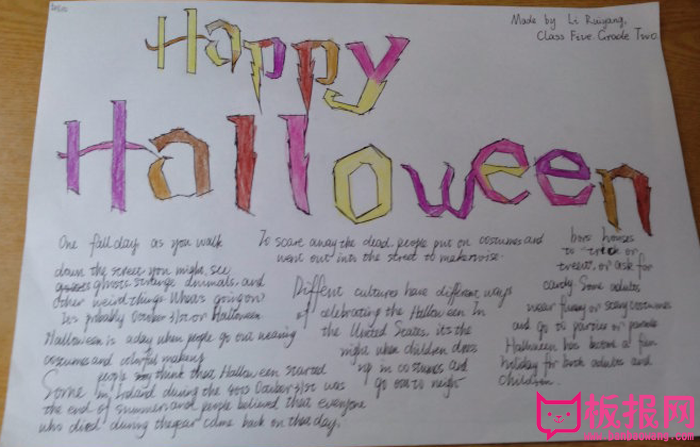 Made by Li Ruiyang,
Class Five Grade Two
Happy
Halloween
One fall day as you walk
down the street you might see
ghosts strange animals, and
other weird things. What's going on?
Its probably October 31st or Halloween
Halloween is a day when people go out wearing
costumes and colorful makeup
Some people think that Halloween started
in Ireland during the October 31st was
the end of summer and people believed that everyone
who died during the year came back on that day.
To scare away the dead, people put on costumes and
went out into the street to make noise.
Diffent cultures have different ways
of celebrating the Halloween In
the United States. it's the
night when children dress
up in costumes and
go out to neigh
bors houses
to "trick or
treat, or ask for
candy. Some adults
wear funny or scary costumes
and go to parties or parade
Halloween has become a fun
holiday for both adults and
children.
板报网
www.banbaowang.com